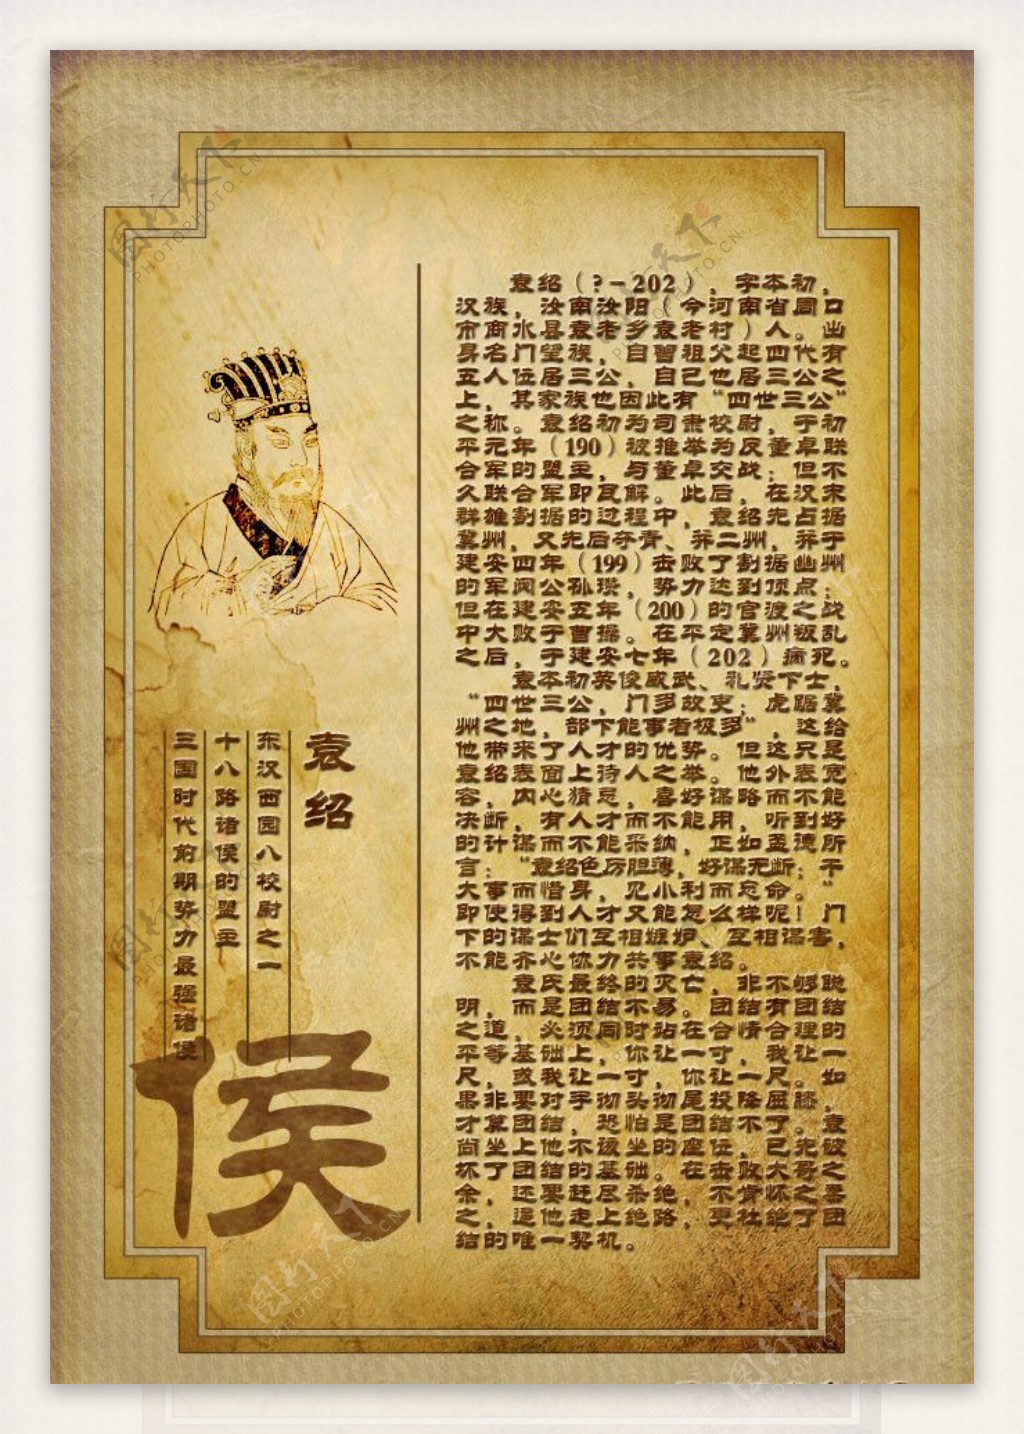 袁绍（?-202），字本初，
汉族，汝南汝阳（今河南省周口
市商水县袁老乡袁老村）人。出
身名门望族，自曾祖父起四代有
五人位居三公，自己也居三公之
上，其家族也因此有“四世三公”
之称。袁绍初为司隶校尉，于初
平元年（190）被推举为反董卓联
合军的盟主，与董卓交战；但不
久联合军即瓦解。此后，在汉末
群雄割据的过程中，袁绍先占据
冀州，又先后夺青、并二州，并于
建安四年（199）击败了割据幽州
的军阀公孙瓒，势力达到顶点；
但在建安五年（200）的官渡之战
中大败于曹操。在平定冀州叛乱
之后，于建安七年（202）病死。
袁本初英俊威武、礼贤下士，
“四世三公，门多故吏；虎踞冀
州之地，部下能事者极多”，这给
他带来了人才的优势。但这只是
袁绍表面上待人之举。他外表宽
容，内心猜忌，喜好谋略而不能
决断，有人才而不能用，听到好
的计谋而不能采纳，正如孟德所
言：“袁绍色厉胆薄，好谋无断；干
大事而惜身，见小利而忘命。”
即使得到人才又能怎么样呢！门
下的谋士们互相嫉妒、互相谋害，
不能齐心协力共事袁绍。
袁氏最终的灭亡，非不够聪
明，而是团结不易。团结有团结
之道，必须同时站在合情合理的
平等基础上，你让一寸，我让一
尺，或我让一寸，你让一尺。如
果非要对手彻头彻尾投降屈膝，
才算团结，恐怕是团结不了。袁
尚坐上他不该坐的座位，已先破
坏了团结的基础。在击败大哥之
余，还要赶尽杀绝，不肯怀之善
之，逼他走上绝路，更杜绝了团
结的唯一契机。
袁绍
东汉西园八校尉之一
十八路诸侯的盟主
三国时代前期势力最强诸侯
侯
图行天下
PHOTOPHOTO.CN